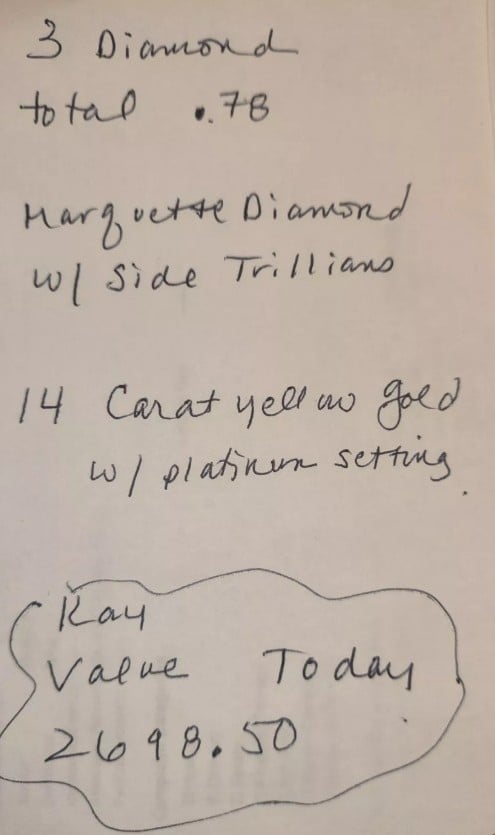 3 Diamond
total .78
Marquette Diamond
w/ Side Trillians
14 Carat yellow gold
w/ platinum setting.
Kay
Value Today
2698.50